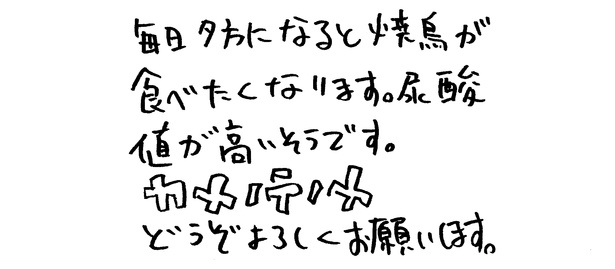 毎日夕方になると焼鳥が
食べたくなります。尿酸
値が高いそうです。
どうぞよろしくお願いします。